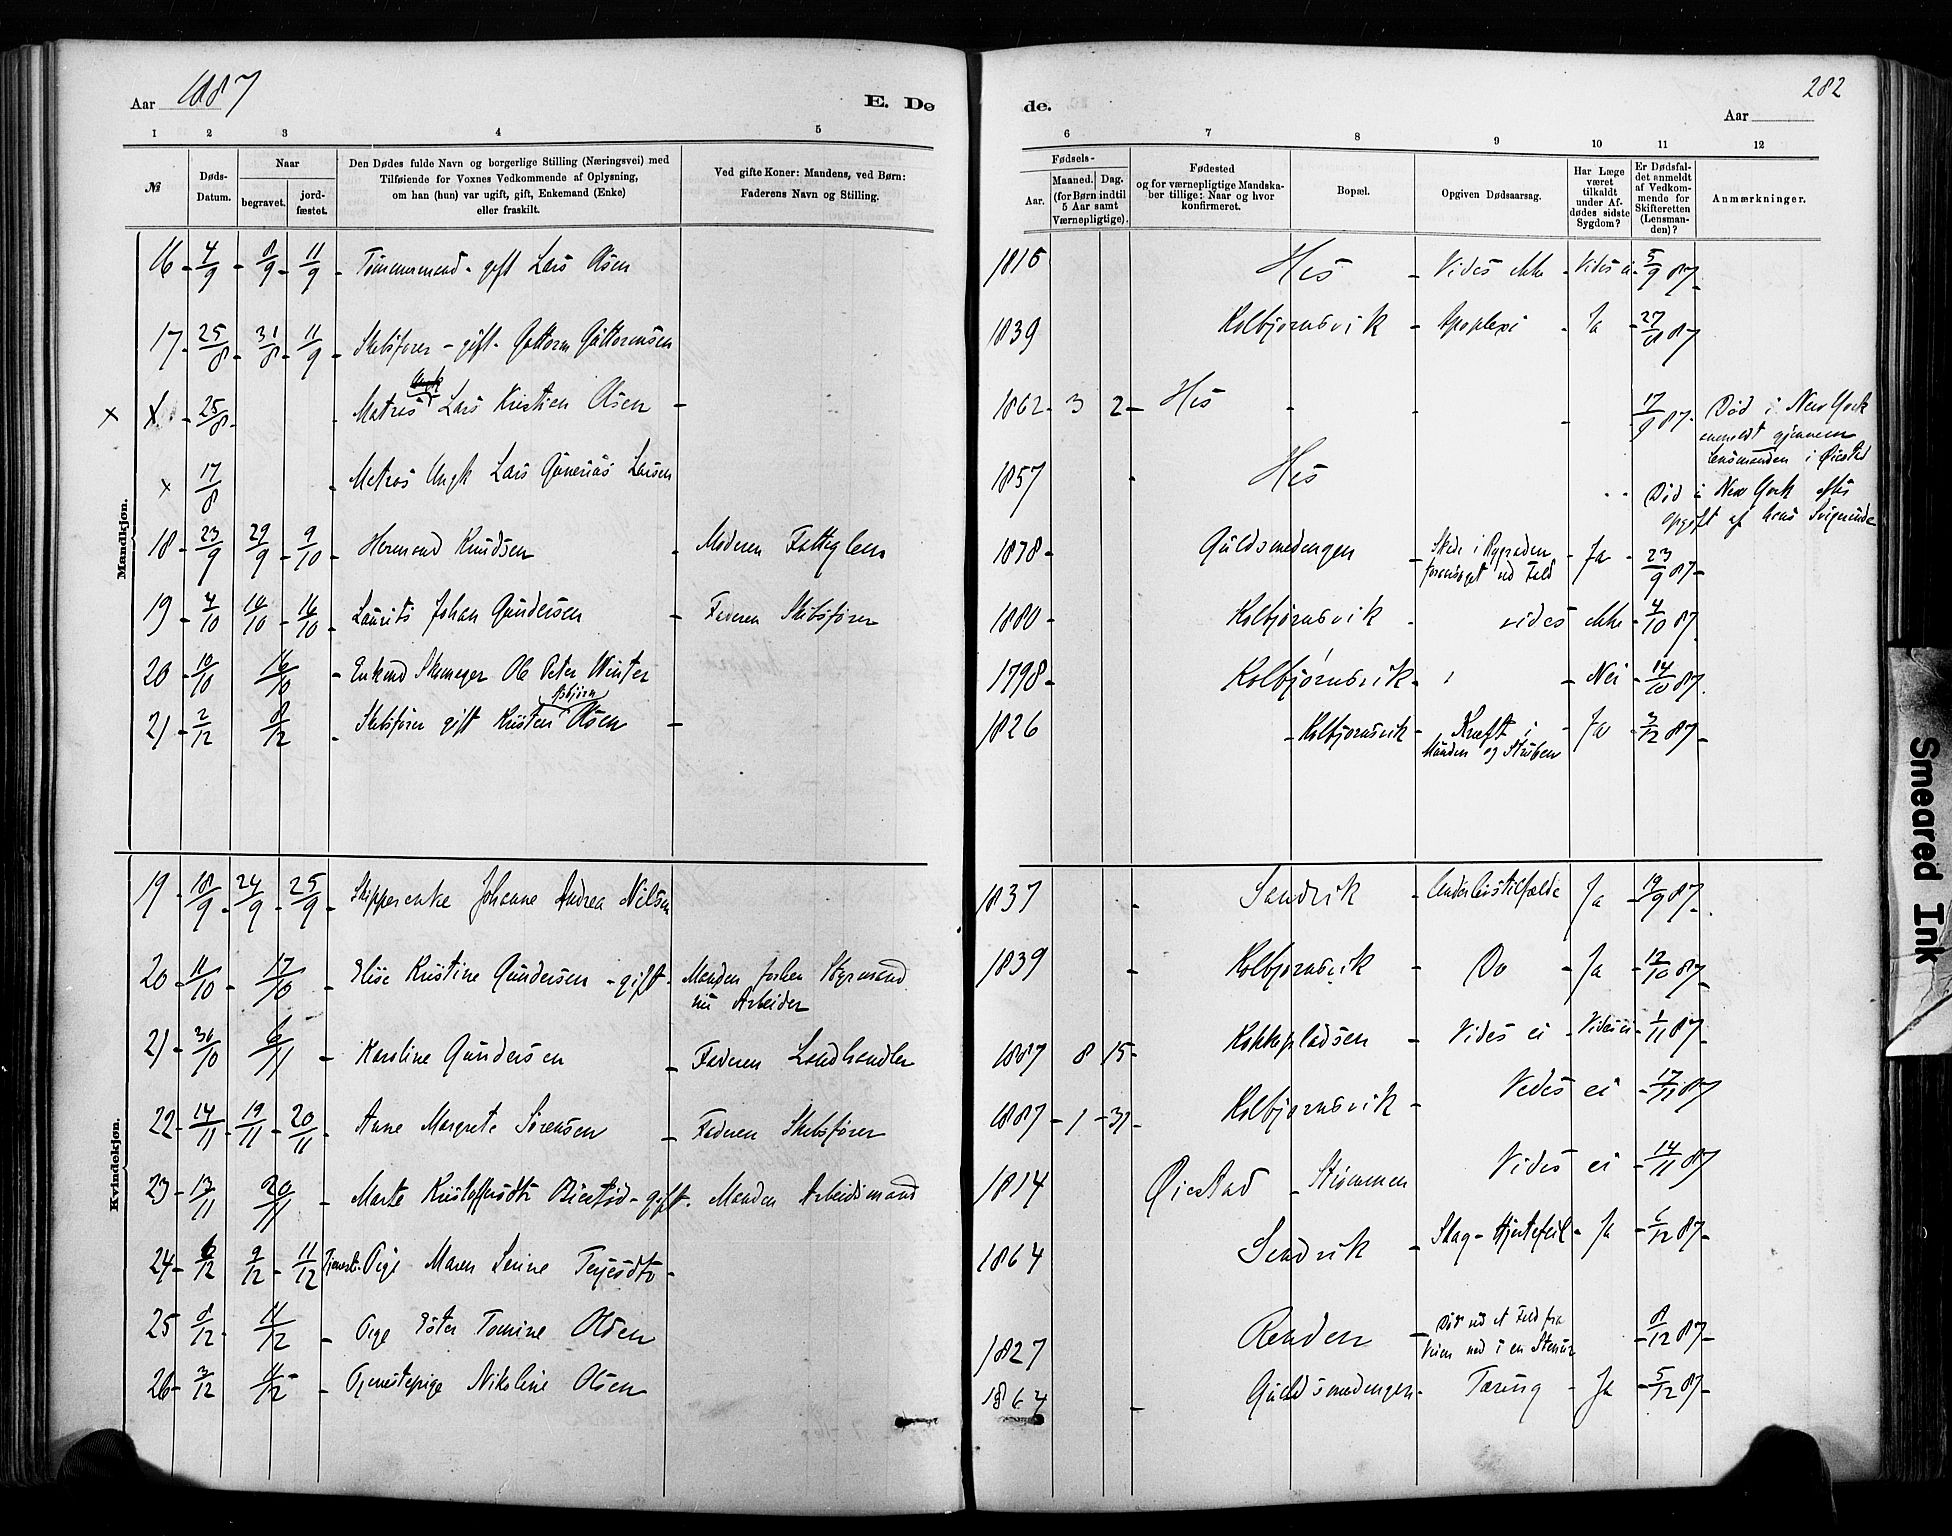 Aar 1887
E. Dø
de.
282
Aar
1 2 3 4 5 6 7 8 9 10 11 12
№
Døds-Datum.
Naar
begravet.
jord-fæstet.
Den Dødes fulde Navn og borgerlige Stilling (Næringsvei) med
Tilføiende for Voxnes Vedkommende af Oplysning,
om han (hun) var ugift, gift, Enkemand (Enke)
eller fraskilt.
Ved gifte Koner: Mandens, ved Børn:
Faderens Navn og Stilling.
Fødsels-
Aar.
Maaned. Dag.
(for Børn indtil
5 Aar samt
Værnepligtige).
Fødested
og for værnepligtige Mandska-
ber tillige: Naar og hvor
konfirmeret.
Bopæl.
Opgiven Dødsaarsag.
Har Læge
været
tilkaldt
under Af-
dødes sidste
Sygdom?
Er Dødsfal-
det anmeldt
af Vedkom-
mende for
Skifteretten
(Lensman-
den)?
Anmærkninger.
Mandkjøn.
16 4/9 8/9 11/9 Tømmermand - gift Lars Olsen 1816 His Vides ikke Vides ei 5/9 87
17 25/8 31/8 11/9 Skibsfører - gift - Guttorm Guttormsen 1839 Kolbjørnsvik Apoplexi Ja 27/8 87
x 25/8 Matros Ungk Lars Kristian Olsen 1862 3 2 His 17/9 87 Død i New York
anmeldt gjennem
Lensmanden i Øiestad
x 17/8 Matros Ungk Lars Gunerius Larsen 1857 His Død i New York efter
opgift af hans Svigerinde
18 23/9 29/9 9/10 Hermand Knudsen Moderen Fattiglem 1878 Guldsmedengen Skade i Rygraden
foraarsaget ved Fald Ja 23/9 87
19 4/10 10/10 16/10 Laurits Johan Gundersen Faderen Skibsfører 1880 Kolbjørnsvik vides ikke 4/10 87
20 10/10 16/10 Enkemd Skomager Ole Peter Winter 1798 Kolbjørnsvik Nei 14/10 87
21 2/12 8/12 Skibsfører gift Kristen Asbjørn Olsen 1826 Kolbjørnsvik Kræft i
Munden og Struben Ja 3/12 87
Kvindekjøn.
19 18/9 24/9 25/9 Skipperenke Johanne Andrea Nilsen 1837 Sandvik Underlivstilfælde Ja 19/9 87
20 11/10 17/10 Elise Kristine Gundersen - gift Manden forhen Styrmand
nu Arbeider 1839 Kolbjørnsvik Do Ja 12/10 87
21 30/10 6/11 Karoline Gundersen Faderen Landhandler 1887 8 15 Kokkepladsen Vides ei Vides ei 1/11 87
22 14/11 19/11 20/11 Anne Margrete Sørensen Faderen Skibsfører 1887 1 31 Kolbjørnsvik Vides ei 17/11 87
23 13/11 20/11 Marte Kristoffersdtr - gift Manden Arbeidsmand 1814 Øiestad Strømmen Vides ei 14/11 87
24 6/12 9/12 11/12 Tjeneste Pige Maren Serine Terjesdtr 1864 Sandvik Slag - Hjertefeil Ja 6/12 87
25 8/12 11/12 Pige Ester Tomine Olsen 1827 Renden Død ved et Fald fra
Veien ned i en Stenur 8/12 87
26 3/12 11/12 Tjenestepige Nikoline Olsen 1864 Guldsmedengen Tæring Ja 5/12 87
Smeared Ink